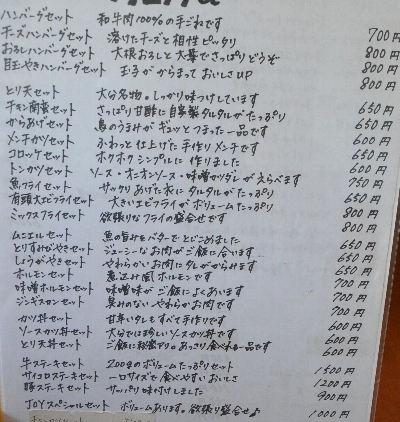 ハンバーグセット 和牛肉100%の手ごねです 700円
チーズハンバーグセット 溶けたチーズと相性ピッタリ 800円
おろしハンバーグセット 大根おろしと大葉でさっぱりどうぞ 800円
目玉やきハンバーグセット 玉子がからまっておいしさUP 800円
とり天セット 大分名物。しっかり味つけしています 650円
チキン南蛮セット さっぱり甘酢に自家製タルタルがたっぷり 650円
からあげセット 鳥のうまみがギュッとつまった一品です 650円
メンチカツセット ふわっと仕上げた手作りメンチです 600円
コロッケセット ホクホクシンプルに作りました 600円
トンカツセット ソース・オニオンソース・味噌カツダレがえらべます 750円
魚フライセット サックリあげた氷にタルタルがたっぷり 650円
有頭大エビフライセット 大きいエビフライがボリュームたっぷり 800円
ミックスフライセット 欲張りなフライの盛合せです 800円
ムニエルセット 魚の旨みをバターでとじこめました 650円
とりすみびやきセット ジューシーなお肉がご飯に合います 650円
しょうがやきセット やわらかいお肉にタレがからみます 650円
ホルモンセット 煮込み風ホルモンです 700円
味噌ホルモンセット 味噌味がご飯によくあいます 700円
ジンギスカンセット 臭みのないやわらかお肉です 700円
カツ丼セット 甘辛いタレもすべて手作りです 600円
ソースカツ丼セット 大分では珍しいソースカツ丼です 600円
とり天丼セット あっさり食べれる一品です 600円
牛ステーキセット 200gのボリュームたっぷりセット 1500円
サイコロステーキセット 一口サイズで食べやすいおいしさ 1200円
豚ステーキセット サッパリ味付けしました 900円
JOYスペシャルセット ボリュームあります。欲張り盛合せ♪ 1000円